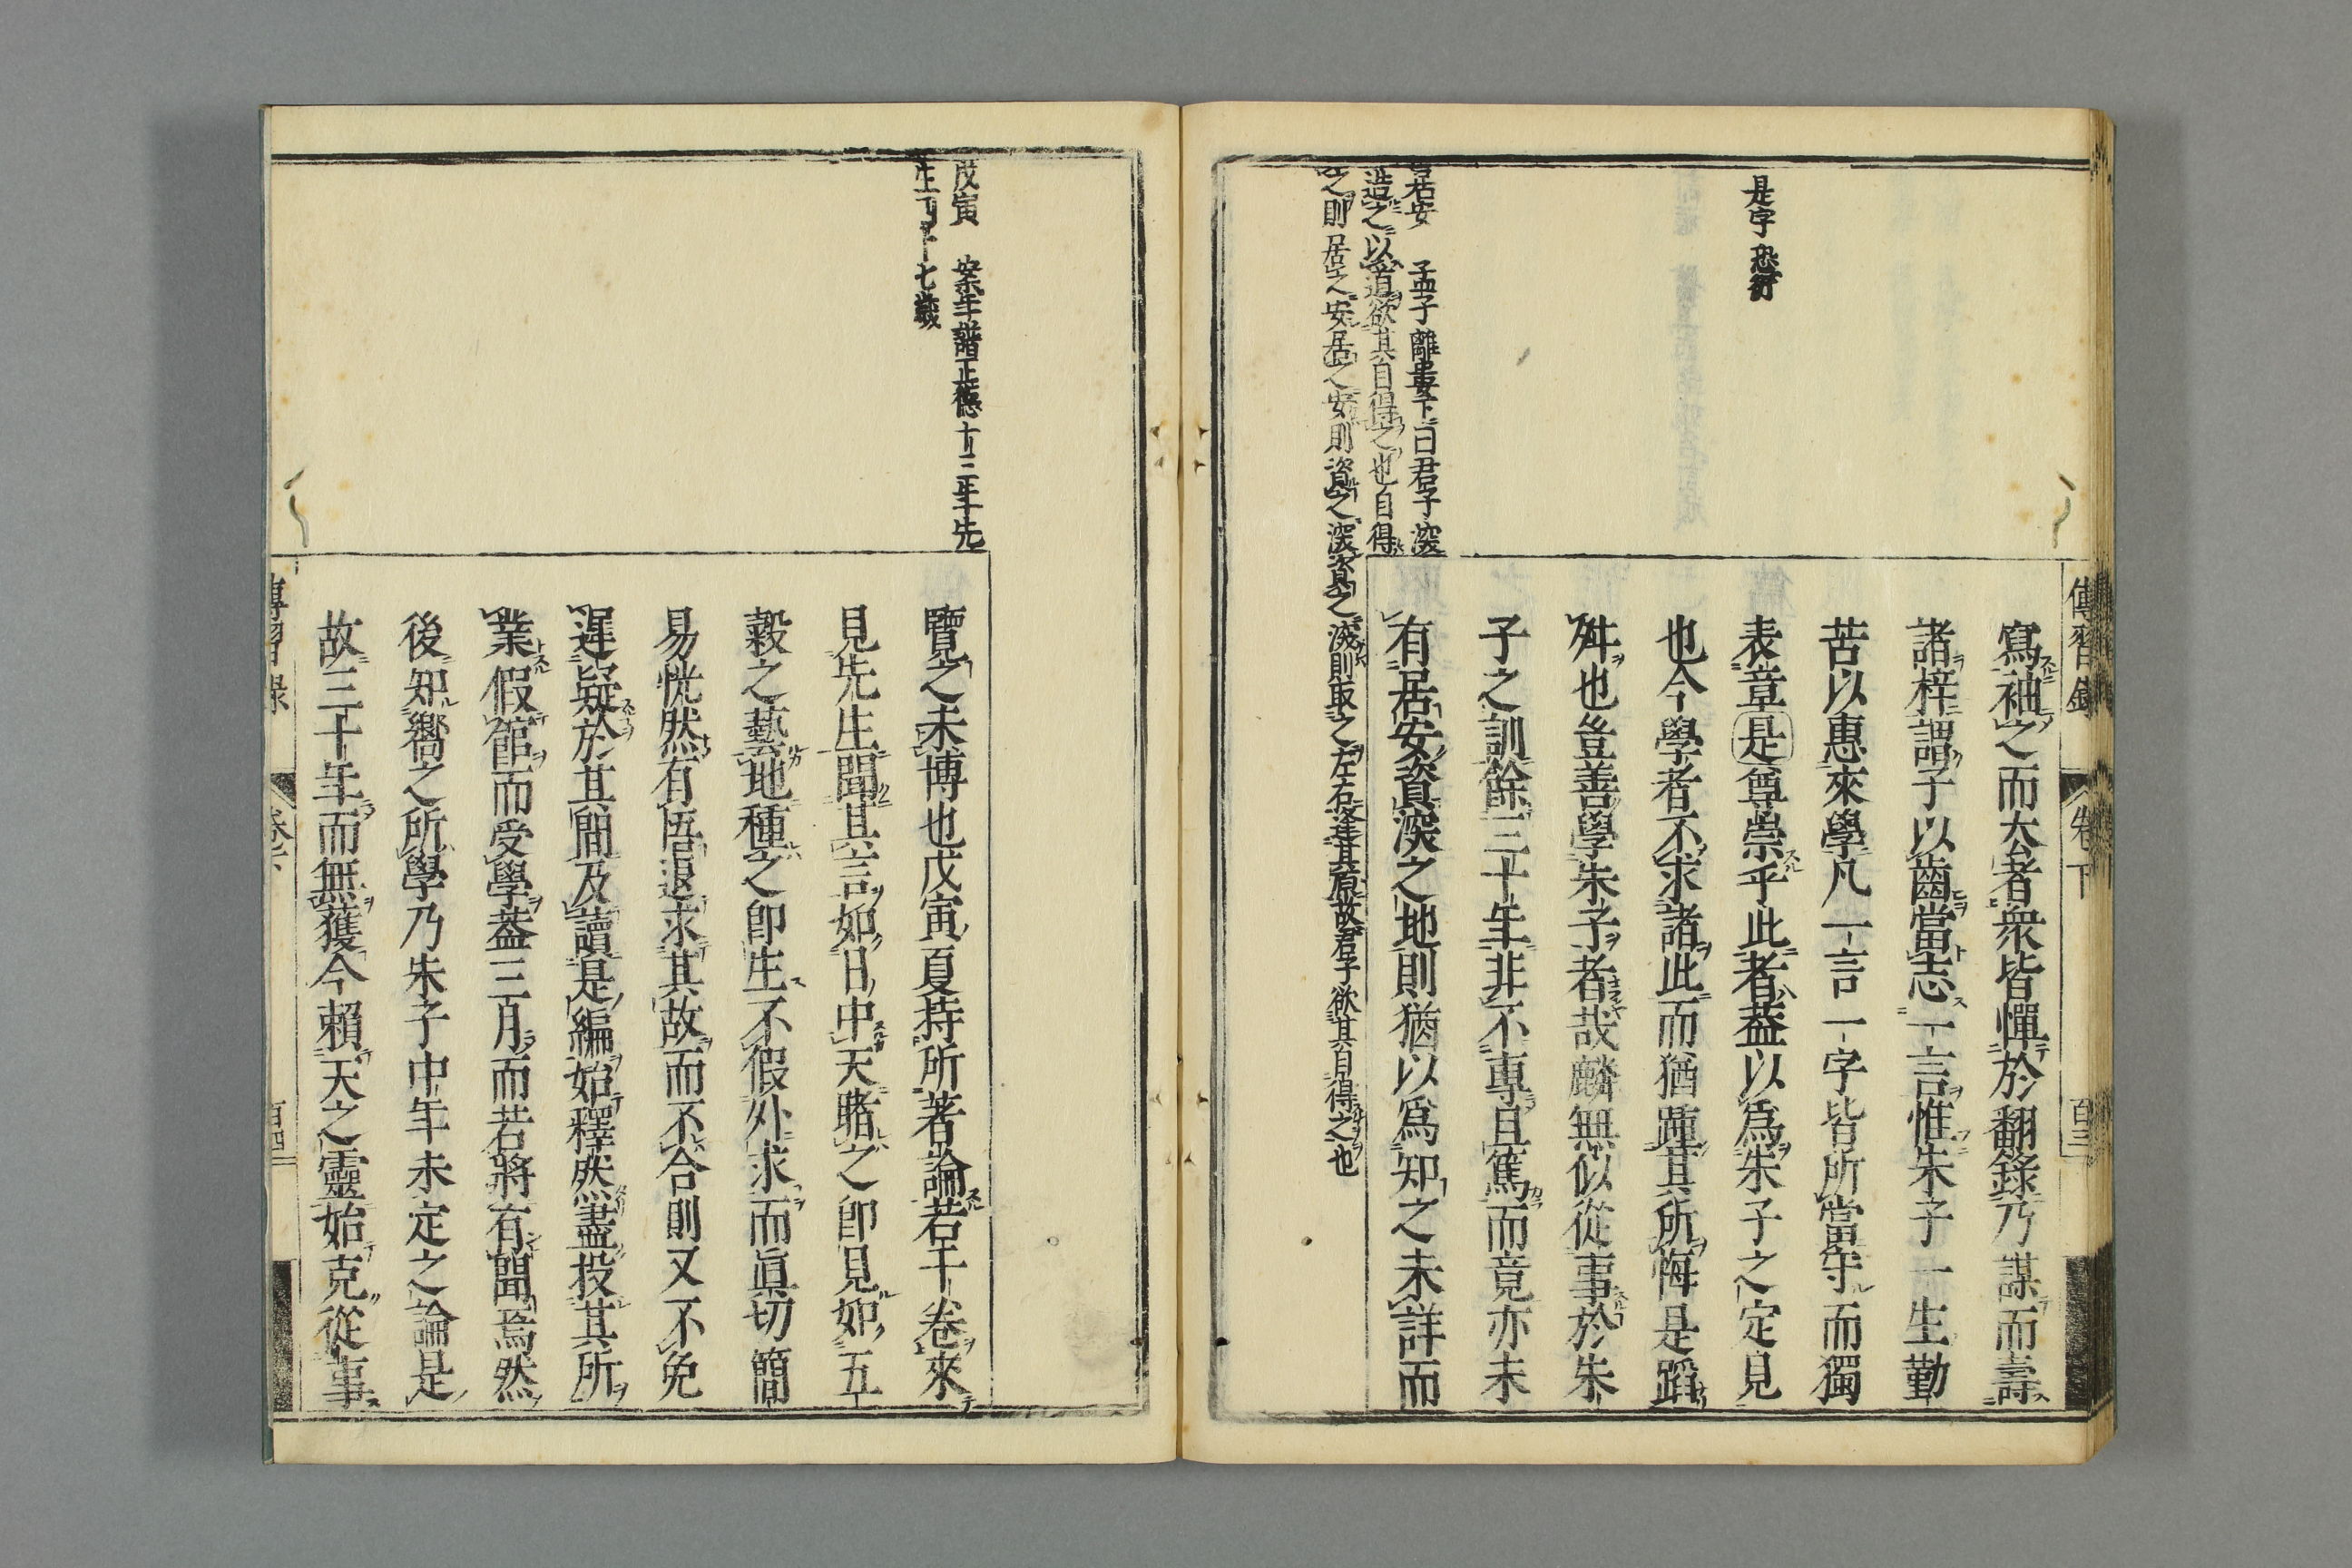 傳習錄
卷下
百三
是字恐衍
寫袖之而大者衆皆憚於翻錄乃謀而壽
諸梓謂子以齒當志一言惟朱子一生勤
苦以惠來學凡一言一字皆所當守而獨
表章是尊崇乎此者蓋以爲朱子之定見
也今學者不求諸此而猶踵其所悔是蹈
舛也豈善學朱子者哉麟無似從事於朱
子之訓餘三十年非不專且篤而竟亦未
有居安資深之地則猶以爲知之未詳而
居安 孟子離婁下曰君子深
造之以道欲其自得之也自得
之則居之安居之安則資之深資之深則取之左右逢其原故君子欲其自得之也
戊寅 案年譜正德十三年先
生四十七歲
覽之未博也戊寅夏持所著論若干卷來
見先生聞其言如日中天睹之卽見如五
穀之藝地種之卽生不假外求而眞切簡
易恍然有悟退求其故而不合則又不免
遲疑於其間及讀是編始釋然盡投其所
業假館而受學蓋三月而若將有聞焉然
後知嚮之所學乃朱子中年未定之論是
故三十年而無獲今賴天之靈始克從事